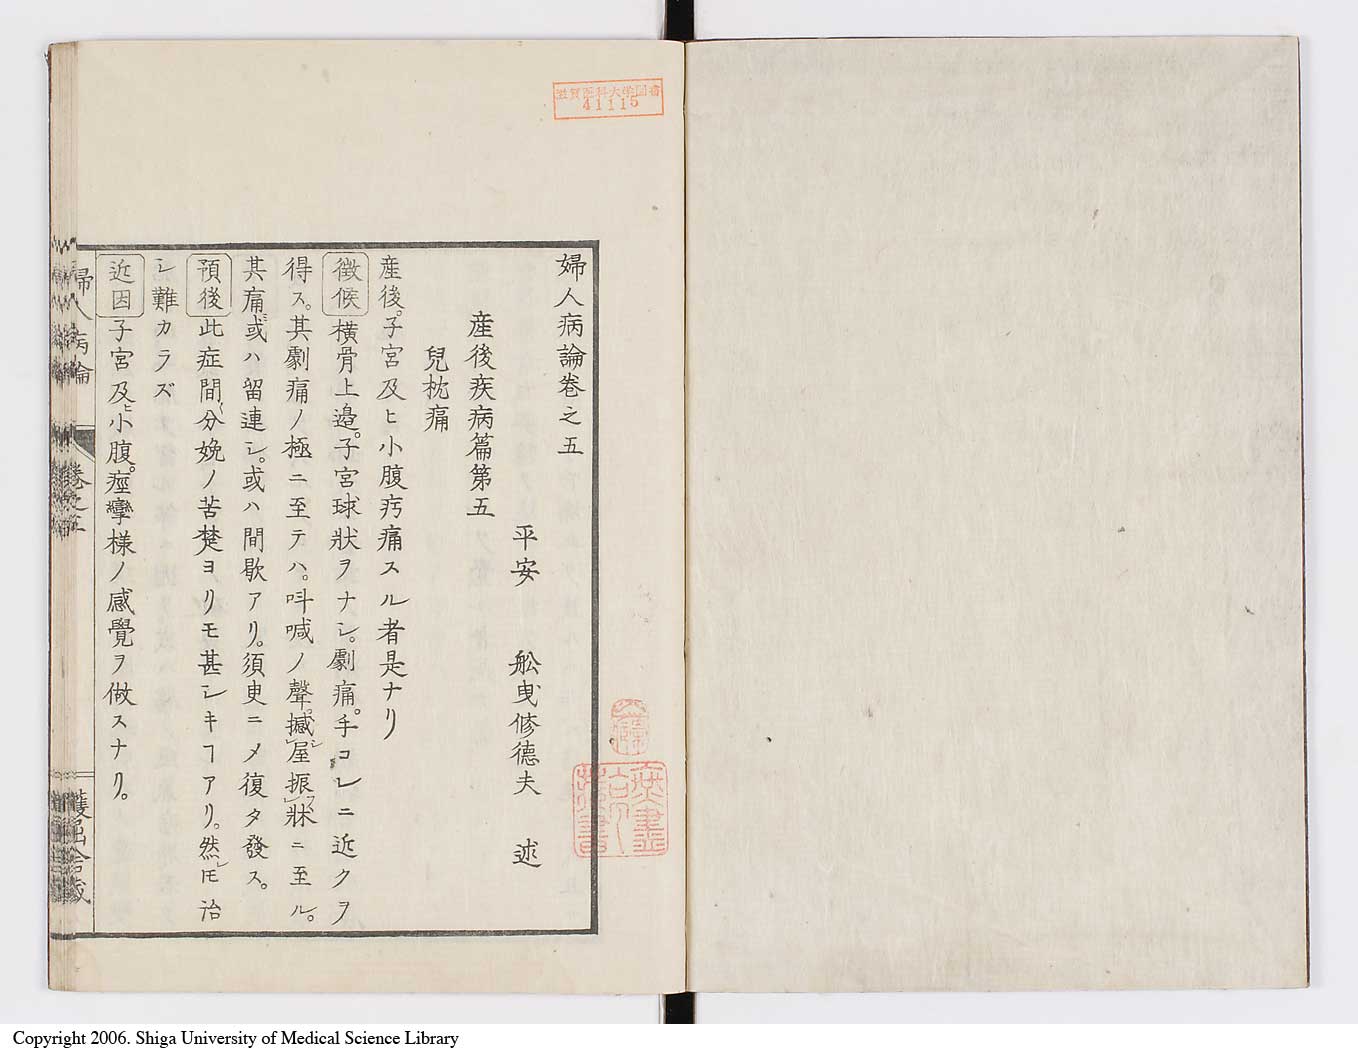 滋賀医科大学図書
41115
婦人病論巻之五
平安 舩曳修德夫 述
産後疾病篇第五
兒枕痛
産後。子宮及ヒ小腹疞痛スル者是ナリ
徴候 横骨上邉。子宮球狀ヲナシ。劇痛。手コレニ近クヲ
得ス。其劇痛ノ極ニ至テハ。呌喊ノ聲。撼シ屋振フ牀ニ至ル。
其痛或ハ留連シ。或ハ間歇アリ。須臾ニメ復タ發ス。
預後 此症間〱分娩ノ苦楚ヨリモ甚シキヿアリ。然レ𪜈治
シ難カラズ
近因 子宮及ヒ小腹。痙攣様ノ感覺ヲ做スナリ。
婦人病論 巻之五
Copyright 2006. Shiga University of Medical Science Library